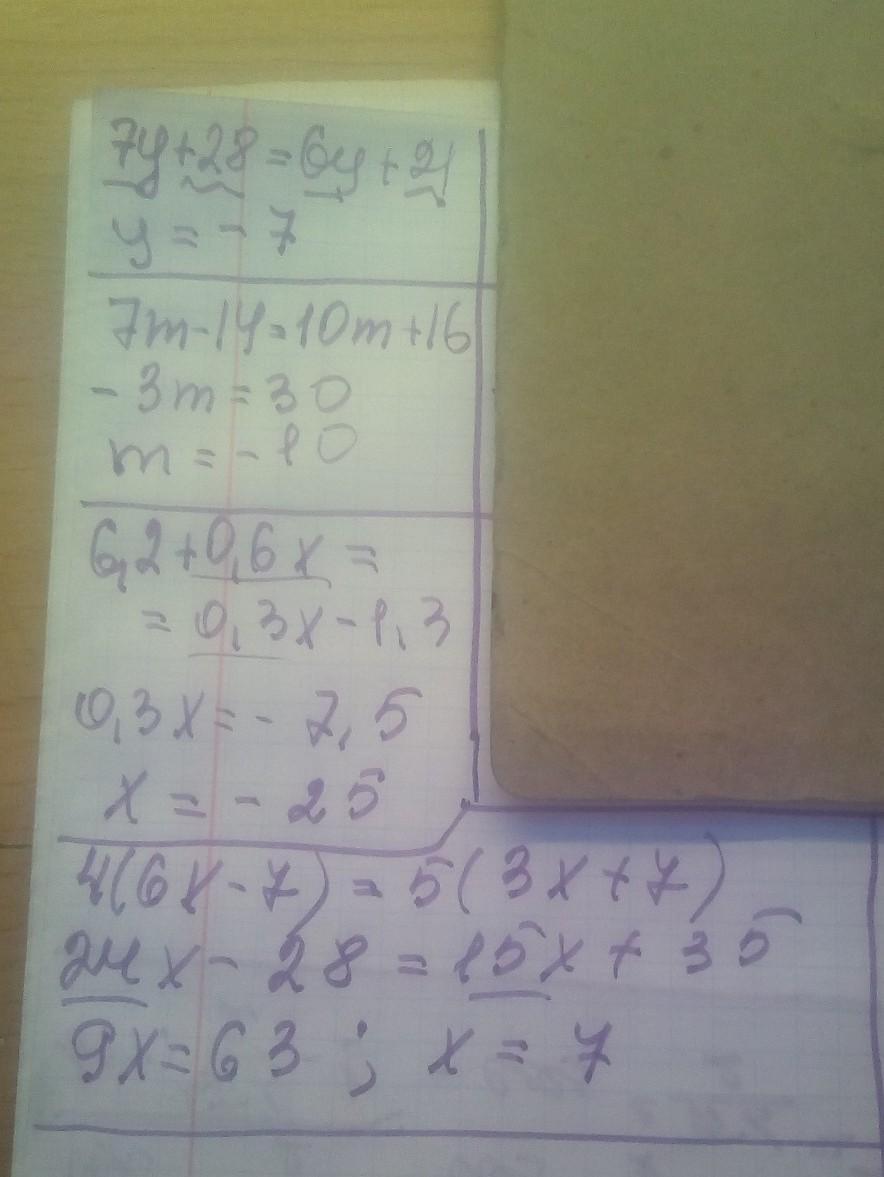 7y+28=6y+21
y=-7
7m-14=10m+16
-3m=30
m=-10
6,2+0,6x=
=0,3x-1,3
0,3x=-7,5
x=-25
4(6x-7)=5(3x+7)
24x-28=15x+35
9x=63; x=7